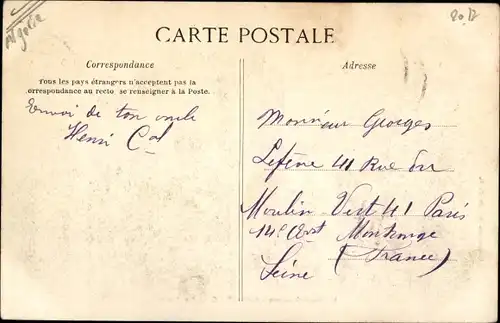 Algérie
20 D
CARTE POSTALE
Correspondance
Tous les pays étrangers n'acceptent pas la
correspondance au recto, se renseigner à la Poste.
Envoi de ton oncle
Henri Cal
Adresse
Monsieur Georges
Lefène 41 Rue du
Moulin Vert 41 Paris
14e Arst Montrouge
(France)
Seine